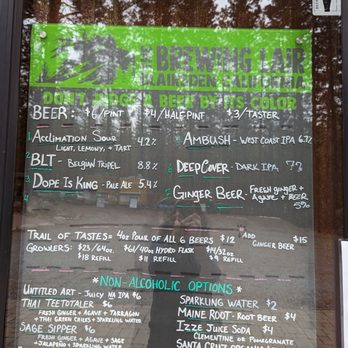 THE BREWING LAIR
BLAIRSDEN CALIFORNIA
DON'T JUDGE A BEER BY ITS COLOR
BEER: $6/PINT $4/HALF PINT $3/TASTER
ACCLIMATION SOUR 4.2%
LIGHT, LEMONY, & TART
BLT - BELGIAN TRIPEL 8.8%
DOPE IS KING - PALE ALE 5.4%
AMBUSH - WEST COAST IPA 6.7%
DEEP COVER - DARK IPA
GINGER BEER - FRESH GINGER +
AGAVE + BEER
5%
TRAIL OF TASTES - 4OZ POUR OF ALL 6 BEERS $12 ADD GINGER BEER $15
GROWLERS: $23/64OZ. $61/40OZ HYDRO FLASK $14/32OZ
$18 REFILL $11 REFILL $9 REFILL
*NON-ALCOHOLIC OPTIONS*
UNTITLED ART - JUICY NA IPA $6
THAI TEETOTALER $6
FRESH GINGER + AGAVE + TARRAGON
+ THAI GREEN CHILES + SPARKLING WATER
SAGE SIPPER $6
FRESH GINGER + AGAVE + SAGE
+ JALAPEÑO + SPARKLING WATER
SPARKLING WATER $2
MAINE ROOT - ROOT BEER $4
IZZE JUICE SODA $4
CLEMENTINE OR POMEGRANATE
SANTA CRUZ